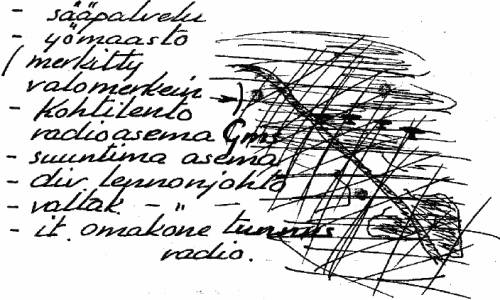 - sääpalvelu
- yömaasto
(merkitty
valomerkein)
- Kohtilento
radioasema
- suuntima asema
- div. lennonjohto
- valtak. - " -
- it. omakone tunnus
radio.